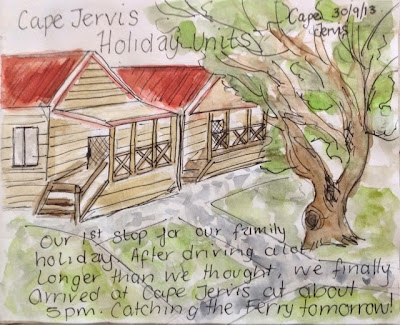 Cape Jervis
Holiday Units
Cape 30/9/13
Jervis
Our 1st stop for our family
holiday. After driving a lot
longer than we thought, we finally
arrived at Cape Jervis at about
5pm. Catching the ferry tomorrow!